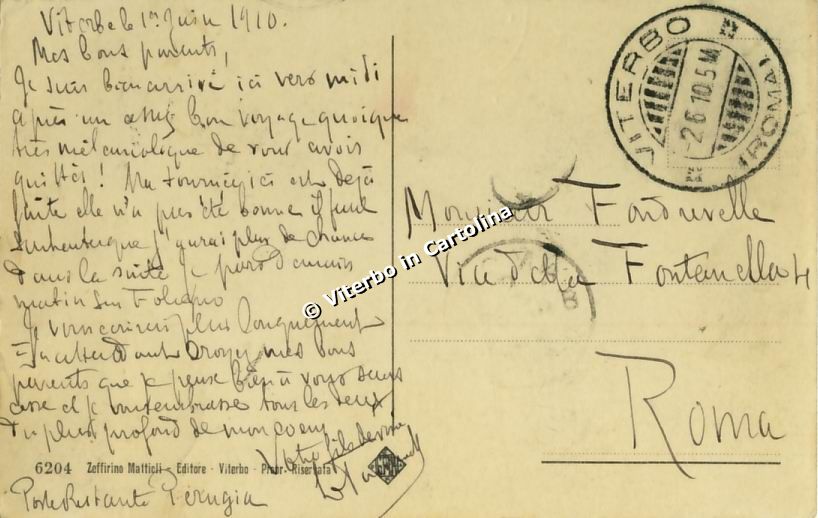 Viterbe le 1er Juin 1910.
Mes bons parents,
Je suis bien arrivé ici vers midi
après un assez bon voyage quoique
très mélancolique de vous avois
quittés ! Ma tournée ici est déjà
faite elle n'a pas été bonne il faut
j'aurai plus de chance
dans la suite je pars demain
matin sur Foligno
Je vous écrirais plus longuement
En attendant croyez mes bons
parents que je pense bien à vous sans
cesse et je vous embrasse tous les deux
du plus profond de mon coeur
Votre fils
6204 Zeffirino Mattioli - Editore - Viterbo - Propr. Riservata
Poste Restante Perugia
VITERBO
2 6 10 5 M
(ROMA)
Monsieur Fonduvelle
Via della Fontanella 4
Roma
© Viterbo in Cartolina